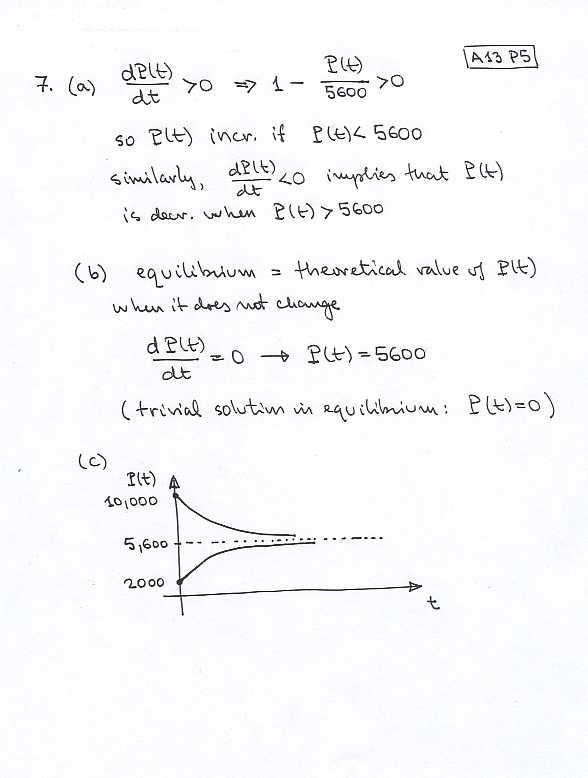 A13 P5
7. (a) dP(t)/dt >0 => 1 - P(t)/5600 >0
so P(t) incr. if P(t)< 5600
similarly, dP(t)/dt <0 implies that P(t)
is decr. when P(t) > 5600
(b) equilibrium = theoretical value of P(t)
when it does not change
dP(t)/dt = 0 → P(t) = 5600
(trivial solution in equilibrium: P(t)=0)
(c)
P(t)
10,000
5,600
2000
t